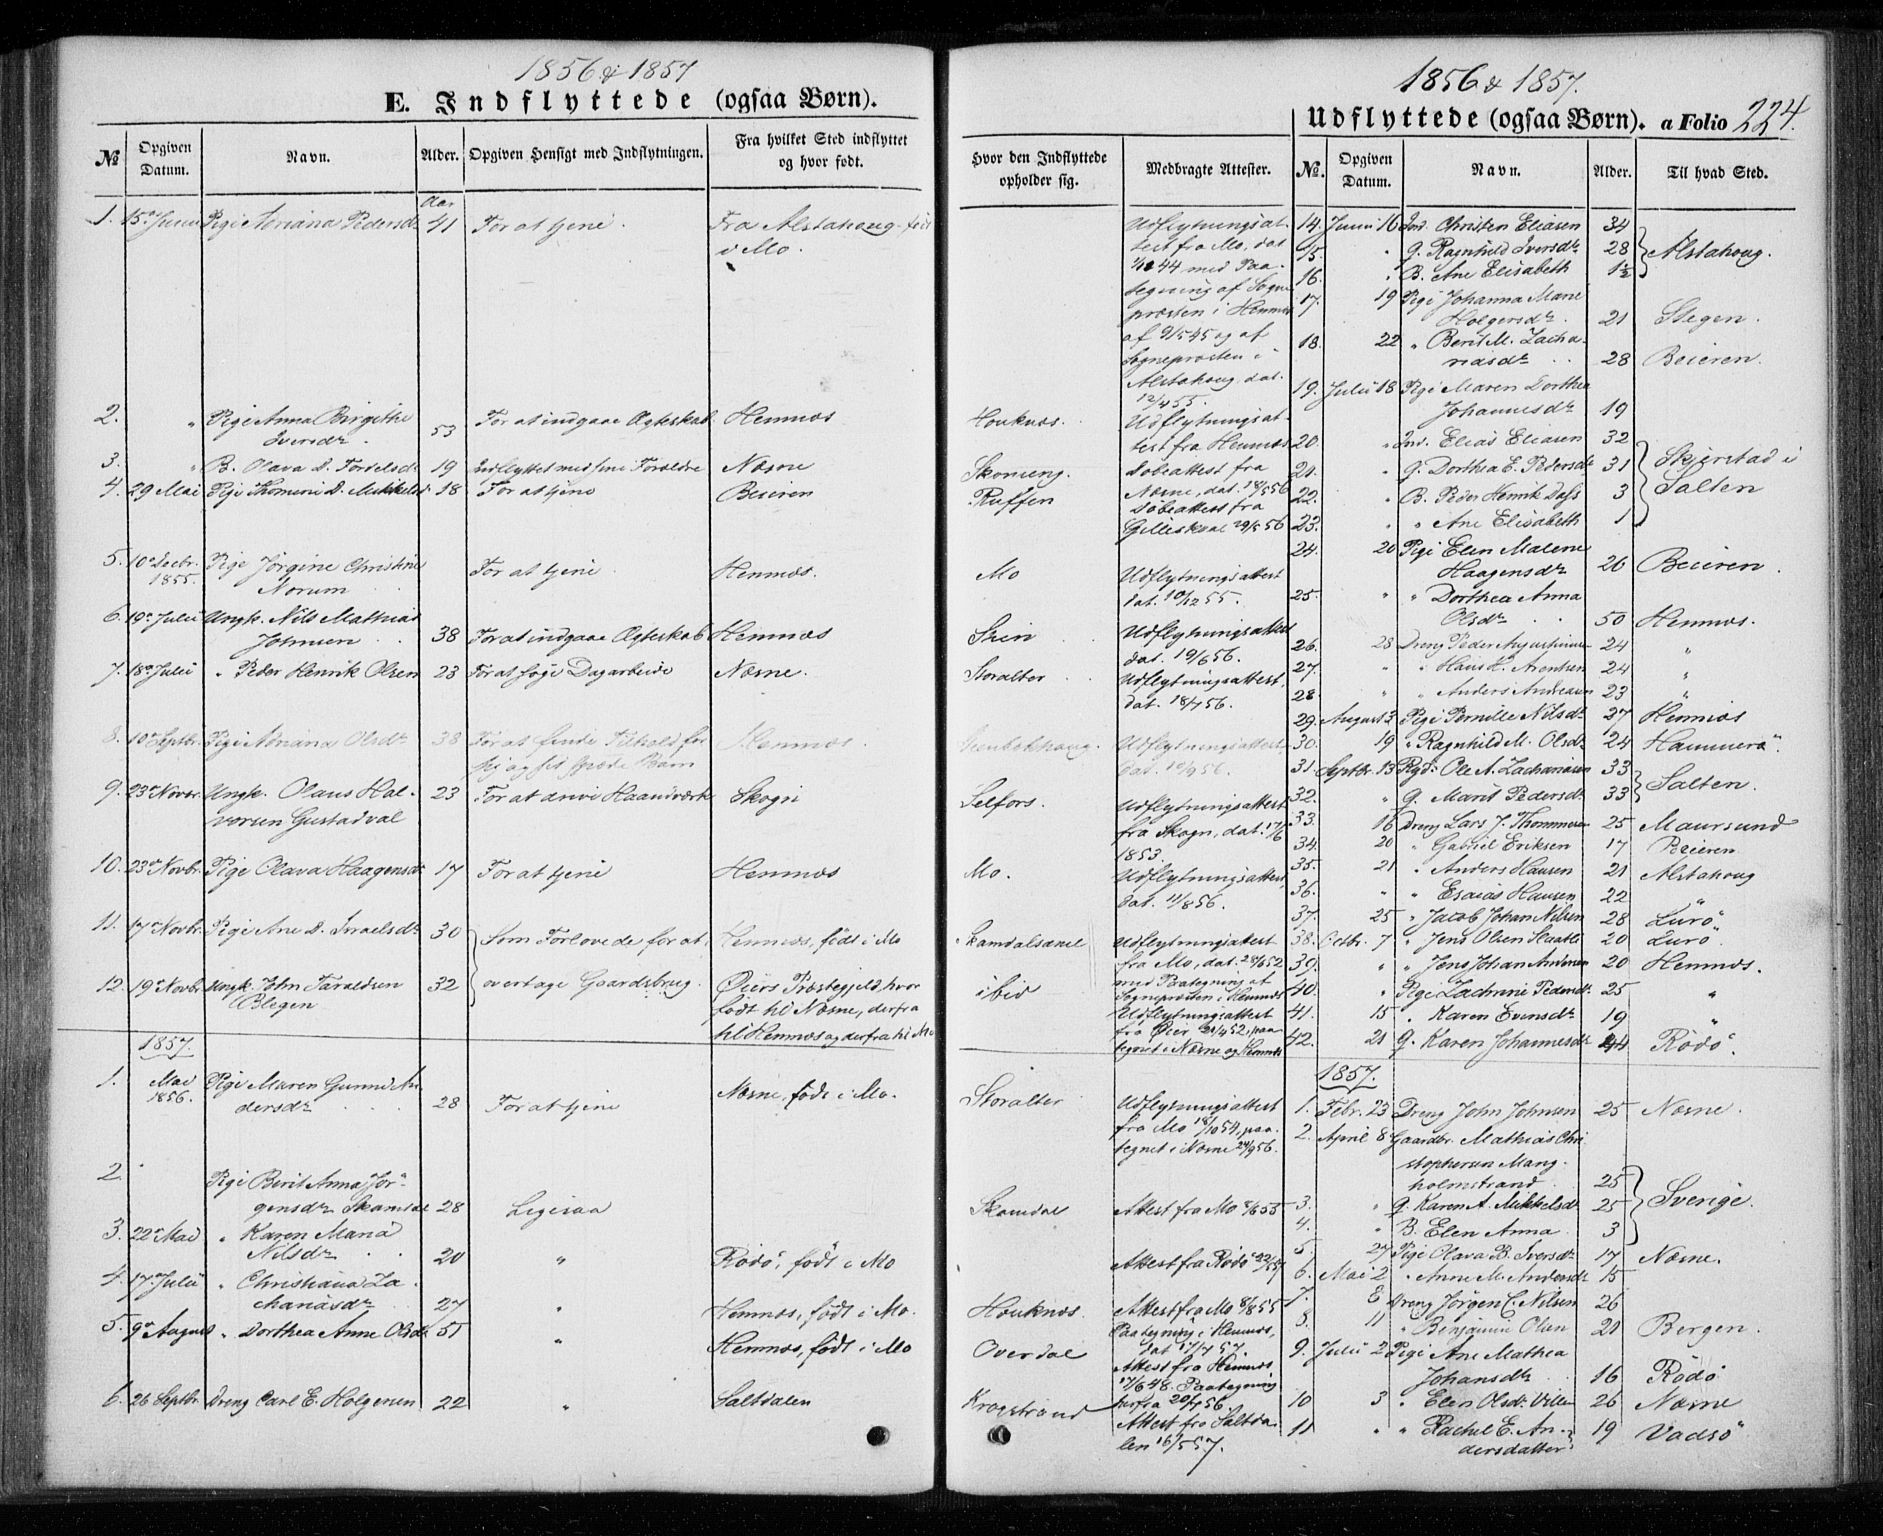 1856 & 1857
E. Indflyttede (ogsaa Børn).
№
Opgiven Datum.
Navn.
Alder.
Opgiven Hensigt med Indflytningen.
Fra hvilket Sted indflyttet og hvor født.
Aar
1. 15de Juni Pige Adriana Pedersdr 41 For at tjene Fra Alstahoug født
i Mo.
2. " Pige Anna Birgithe
Iversdr 53 For at indgaae Ægteskab Hemnæs
3. " B. Olava D. Tordelsdr 19 Indflyttet med sine Forældre Næsne
4. 29 Mai Pige Thomine D. Mikkelsd 18 For at tjene Beieren
5. 10de Decbr. Pige Jørgine Christine
1855. Norum For at tjene Hemnæs.
6. 19de Julii Ungk. Nils Mathias
Johnsen 38 For at indgaae Ægteskab Hemnæs
7. 18de Julii " Peder Henrik Olsen 23 For at søge Dagarbeide Næsne.
8. 10de Septbr. Pige Adriana Olsdr 38 For at finde Tilhold for Hemnæs.
sig og sit spæde Barn
9. 23de Novbr. Ungk. Olaus Hal-
vorsen Gustadval 23 For at drive Haandværk Skogn
10. 23de Novbr. Pige Olava Haagensdr 17 For at tjene Hemnæs
11. 17de Novbr. Pige Ane D. Israelsdr 30 Som Forlovede for at Hemnæs, født i Mo
12. 19de Novbr Ungk. John Taraldsen 32 overtage Gaardsbrug. Øiers Præstegjeld, hvor
Blegen født til Næsne, derfra
til Hemnæs og derfra til Mo
1857.
1. Mai Pige Maren Gunnild An-
1856. dersdr 28 For at tjene Næsne, født i Mo.
2. Pige Berit Anna Jør-
gensdr Skamdal 28 Ligesaa
3. 22de Mai " Karen Maria
Nilsdr 20 " Rödö, født i Mo
4. 17. Julii " Christiana Za-
chariasdr 27 " Hemnæs, født i Mo.
5. 9de August " Dorthea Anne Olsdr 51 " Hemnæs, født i Mo
6. 26 Septbr. Dreng Carl E. Holgersen 22 " Saltdalen
1856 & 1857.
Udflyttede (ogsaa Børn). a Folio 224.
Hvor den Indflyttede opholder sig.
Medbragte Attester.
№.
Opgiven Datum.
Navn.
Alder.
Til hvad Sted.
Udflytningsat-
test fra Mo, dat
44 med Paa-
tegning af Sogne
præsten i Hemnæs
af 9/5 45 og af
Sognepræsten i
Alstahoug dat.
12/4 55.
Houknæs. Udflytningsat-
test fra Hemnæs
Skonseng. Døbeattest fra
Næsne, dat. 18/5 56
Røffen Døbeattest fra
Gilleskaal 29/5 56
Mo Udflytningsattest
dat. 10/12 55.
Udflytningsattest
dat. 19/6 56.
Storalter Udflytningsattest,
dat. 18/7 56.
Udflytningsattest
dat. 10/9 56.
Selfors. Udflytningsattest
fra Skogn, dat. 17/6
1853.
Mo. Udflytningsattest,
dat. 11/8 56.
Udflytningsattest
fra Mo, dat. 28/6 52
med Paategning af
Sognepræsten i Hemnæs
ibid Udflytningsattest
fra Øier 21/4 52, paa-
tegnet i Næsne og Hemnæs
Storalter Udflytningsattest
fra Mo 18/10 54, paa-
tegnet i Næsne 24/9 56.
Skamdal Attest fra Mo
Attest fra Rödö 22/5 57
Houknæs. Attest fra Mo 8/8 55
Paategning i Hemnæs,
dat 17/7 57.
Overdal Attest fra Hemnæs
17/6 48. Paategning
herfra 20/7 56.
Krogstrand Attest fra Saltda-
len 16/5 57.
14. Juni 16 Ind. Christen Eliasen 34
15. " G. Ragnhild Iversdr 28 Alstahoug.
16. " B. Ane Elisabeth 1½
17. 19 Pige Johanna Marie
Holgersdr. 21 Stegen.
18. 22 " Berit M. Zacha-
riasdr 28 Beieren.
19. Julii 18 Pige Maren Dorthea
Johannesdr 19
20. " Ind. Elias Eliasen 32
21. " G. Dorthea E. Pedersdr 31 Skjerstad i
22. " B. Peder Henrik Dass 3 Salten
23. " " Ane Elisabeth 1
24. 20 Pige Elen Malene
Haagensdr 26 Beieren.
25. " " Dorthea Anna
Olsdr 50 Hemnæs.
26. 28 Dreng Peder Augustinusen 24 "
27. " " Hans K. Arentsen 24 "
28. " " Anders Andreasen 23 "
29. August 3 Pige Pernille Nilsdr 27 Hemnæs
30. 19 " Ragnhild M. Olsdr 24 Hammerö.
31. Septbr. 13 Rydn. Ole A. Zachariasen 33
32. " G. Marit Pedersdr. 33 Salten.
33. 16 Dreng Lars J. Thommesen 25 Maursund
34. 20 " Gabriel Eriksen 17 Beieren
35. 21 " Anders Hansen 21 Alstahoug
36. " " Esaias Hansen 22 "
37. 25 " Jacob Johan Nilsen 28 Lurö
38. Octbr. 7 " Jens Olsen 20 Lurö
39. " " Jens Johan Andersen 20 Hemnæs.
40. " Pige Zachrine Pedersdr 25 "
41. 15 " Karen Evensdr 19 "
42. 21 G. Karen Johannesdr 44 Rödö.
1857.
1. Febr. 23 Dreng John Johnsen 25 Næsne.
2. April 8 Gaardbr. Mathias Chri-
stophersen Mang-
holmstrand 25
3. " G. Karen A. Mikkelsdr 25 Sverige.
4. " B. Elen Anna 3
5. 27 Pige Olava B. Iversdr 17 Næsne.
6. Mai 2 " Anne M. Andersdr 15
7. Dreng Jörgen C. Nilsen 26
8. 11 " Benjamin Olsen 21 Bergen.
9. Julii 2 Pige Ane Mathea
Johansdr 16 Rödö
10 3 " Elen Olsdr Villa 26 Næsne
11 " " Rachel E. An-
dersdatter 19 Vadsö